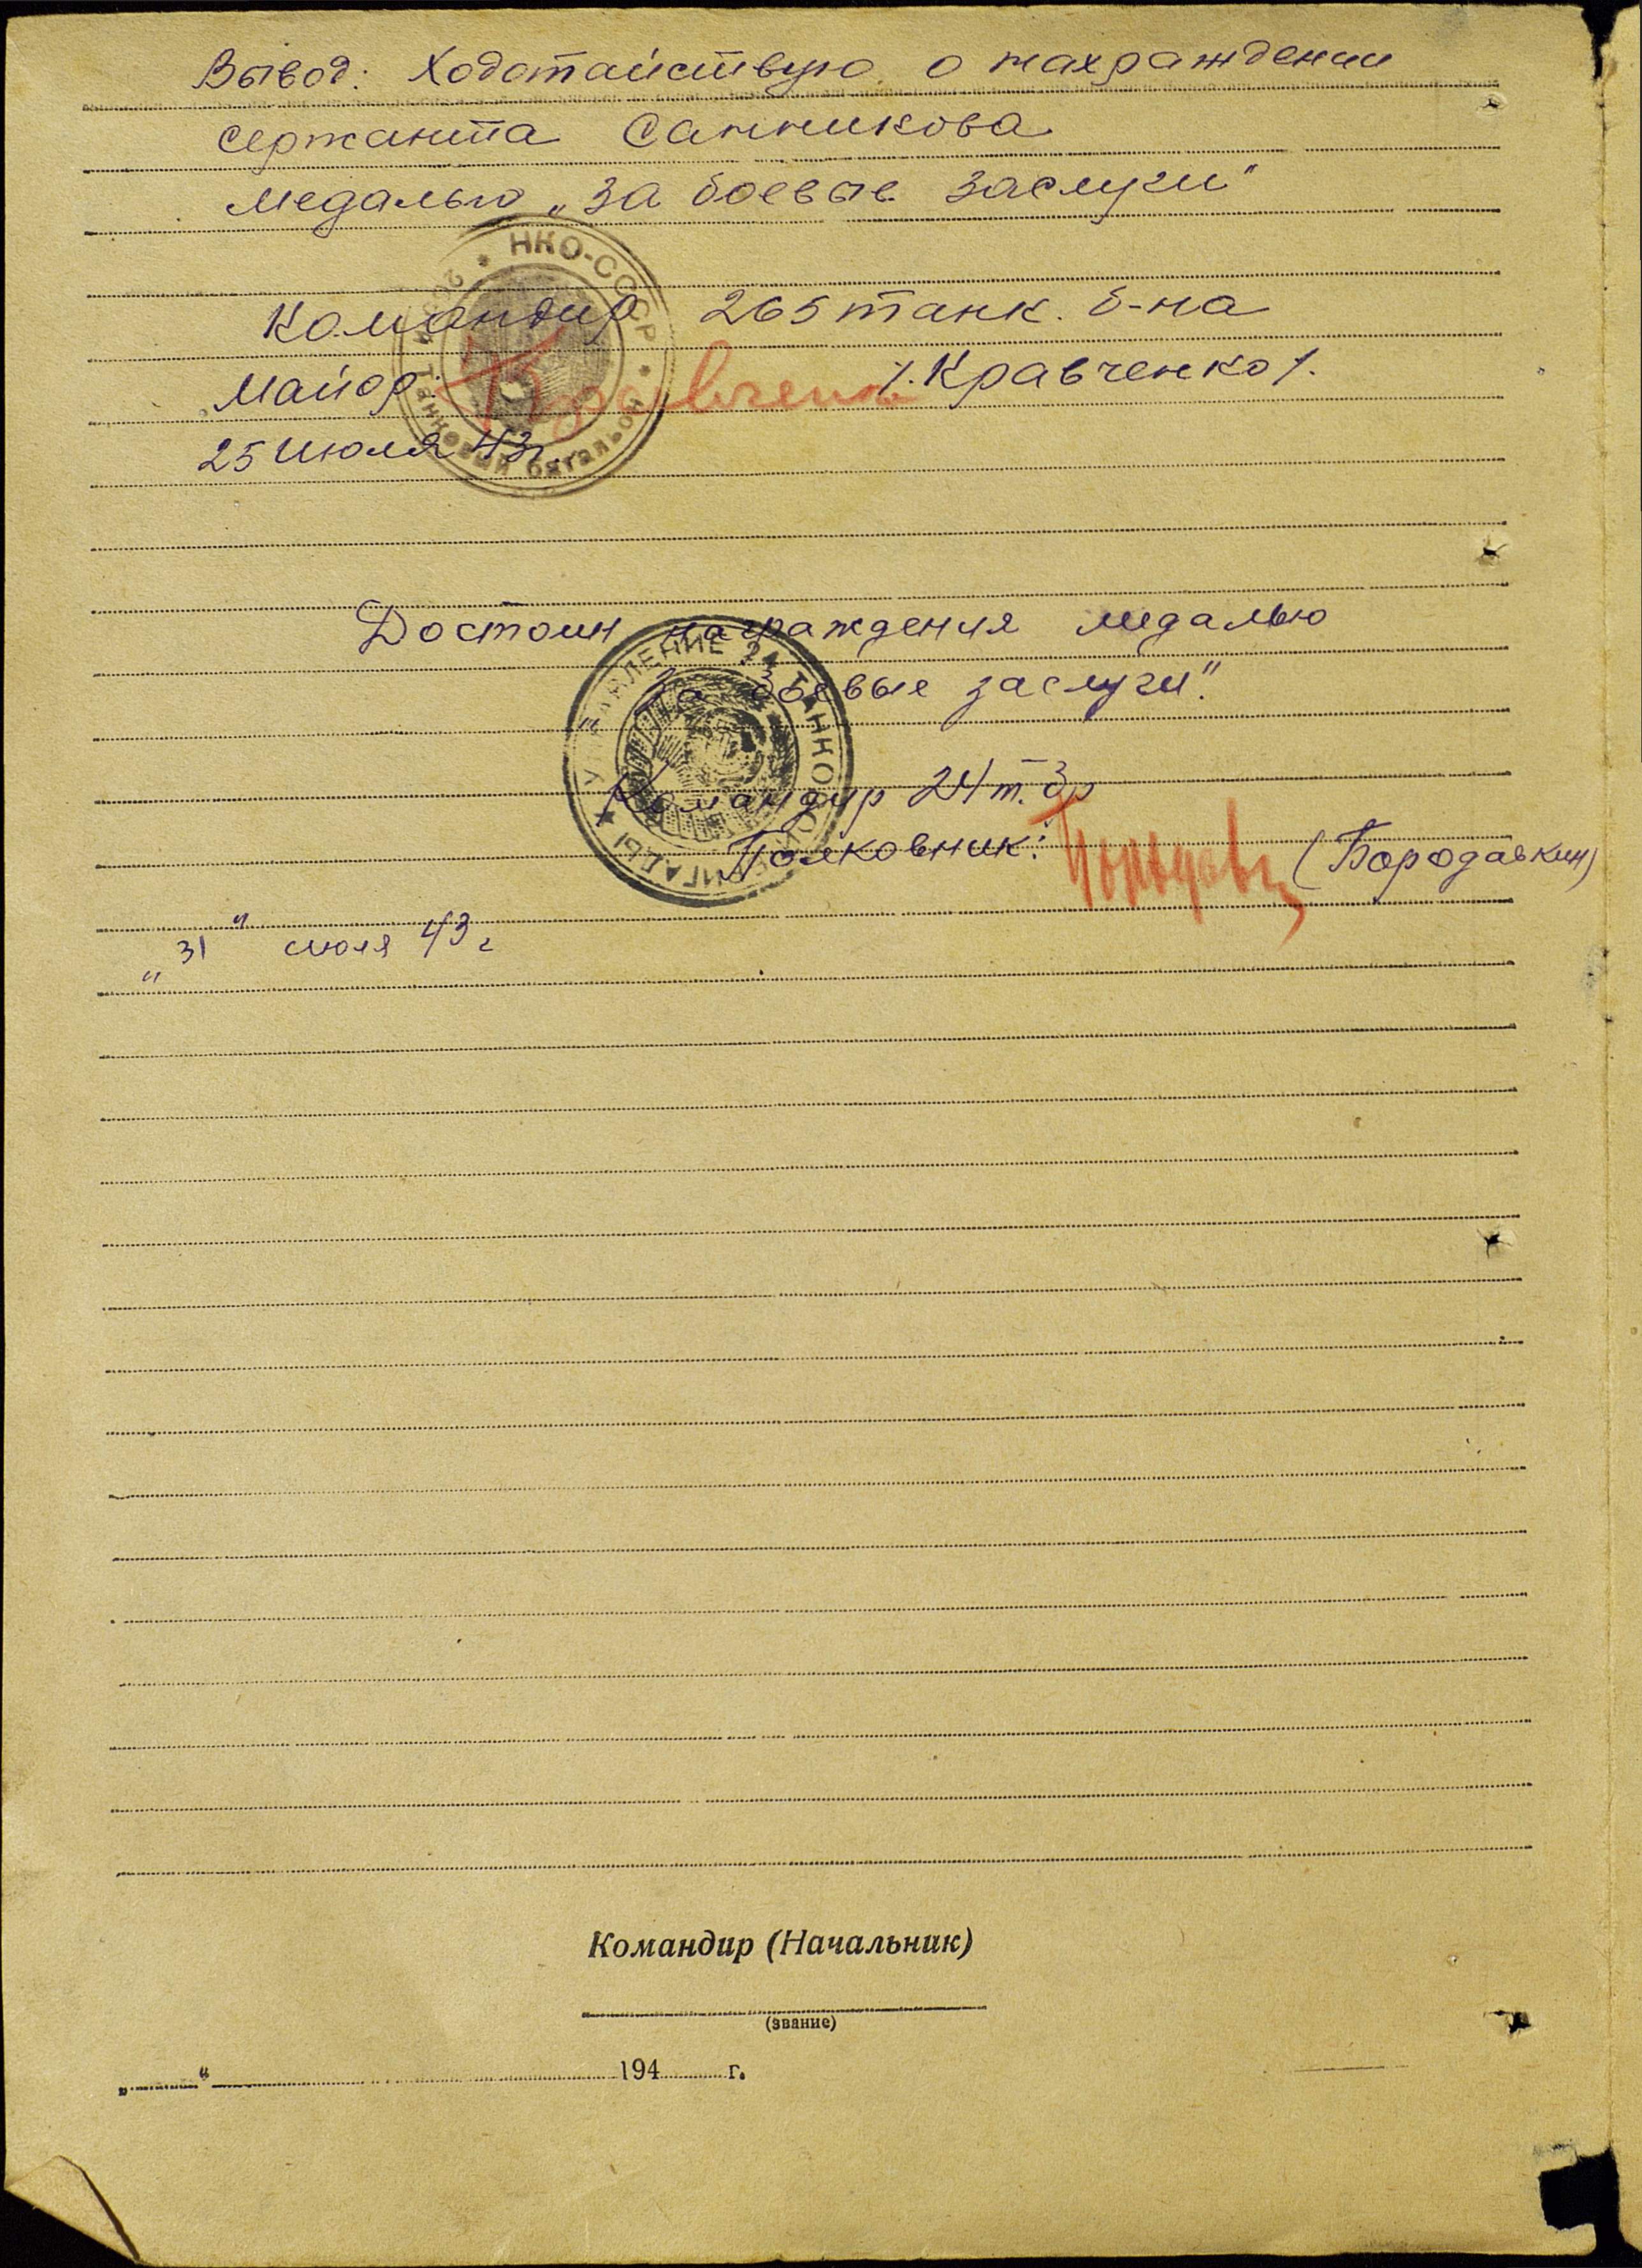 Вывод: Ходотайствую о награждении
сержанта Санникова
медалью „За боевые заслуги“
НКО-СССР
Танковый батальон
Командир 265 танк. б-на
Майор: Кравченко /.Кравченко/.
25 июля 43г.
Достоин награждения медалью
„За боевые заслуги“.
УПРАВЛЕНИЕ 24 ТАНКОВОЙ БРИГАДЫ
Командир 24 т. бр
Полковник: (Бородавкин)
„31“ июля 43 г
Командир (Начальник)
(звание)
„ “ 194 г.